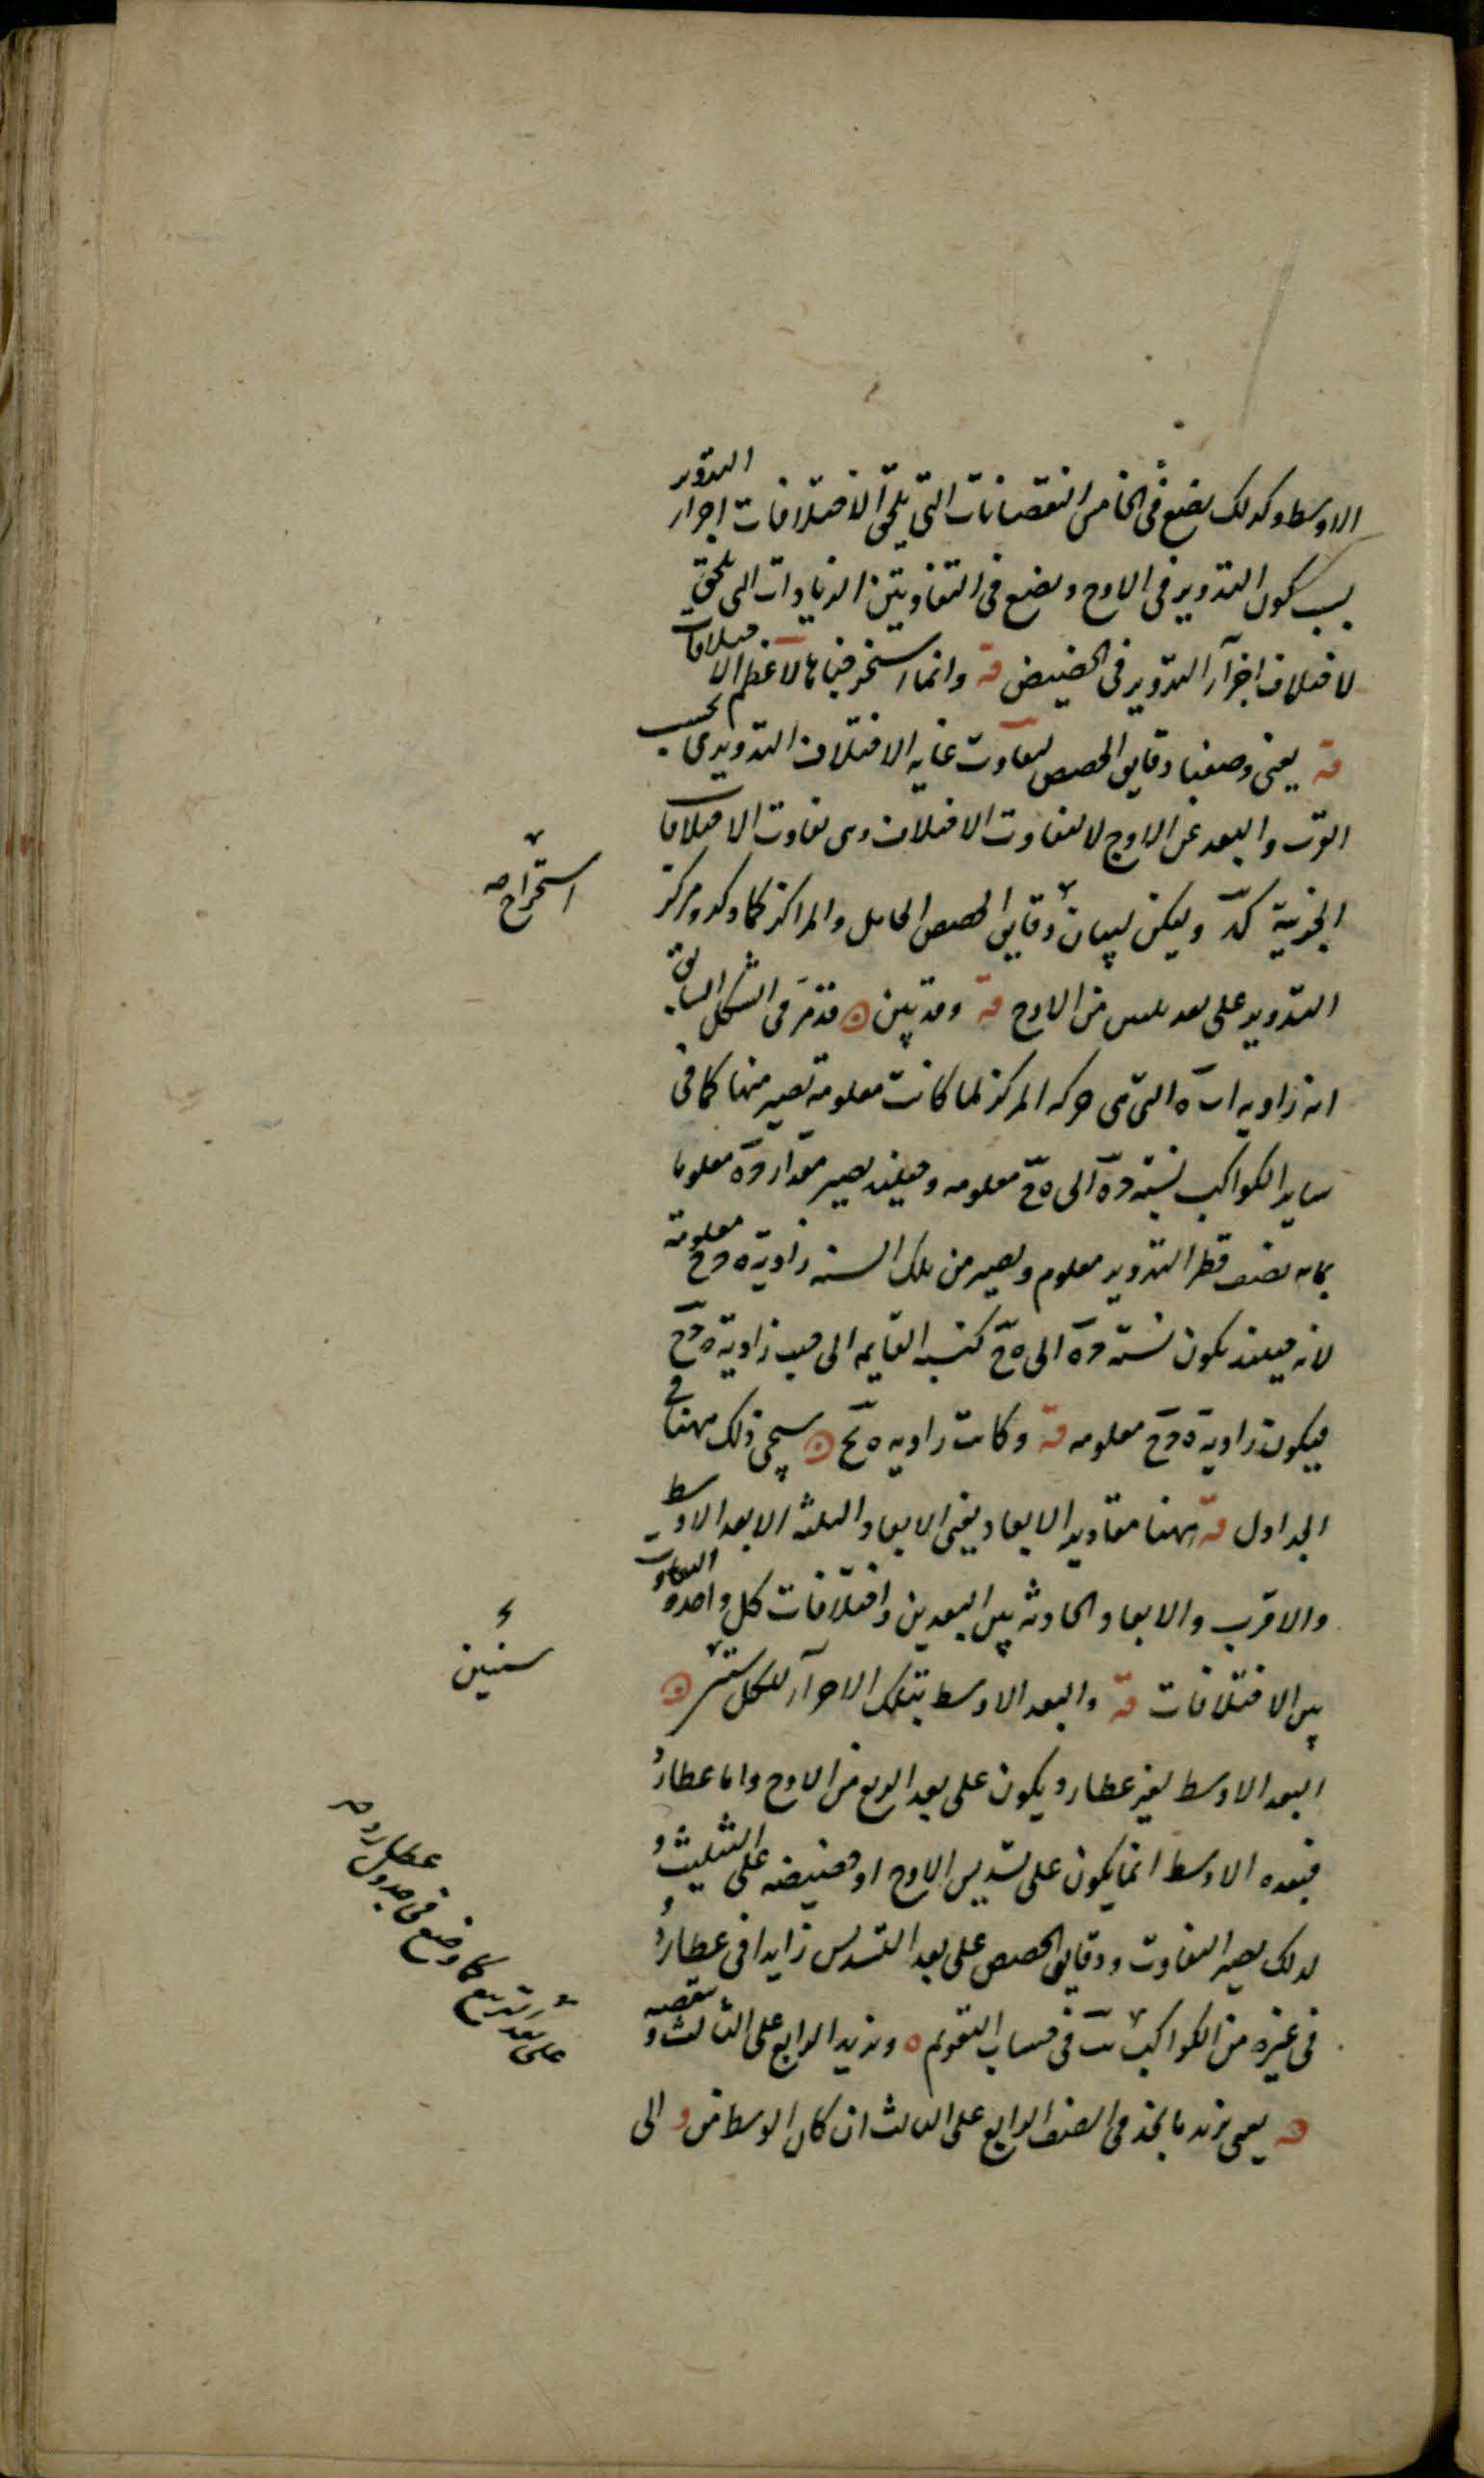 الاوسط وكذلك يضع فى الخامس النقصانات التى يلحق الاختلافات اجزاء التدوير
بسبب كون التدوير فى الاوج ويضع فى التفاوتين الزيادات التى يلحق
لاختلاف اجزآء التدوير فى الحضيض قه وانما استخرجناها لاعظم الاختلافات
قه يعنى وضعنا دقايق الحصص لتفاوت غاية الاختلاف التدويرى بحسب
القرب والبعد عن الاوج لا لتفاوت الاختلاف وهى تفاوت الاختلافات
الجزئية وليكن لبيان دقايق الحصص الحامل والمراكز كما ذكر ومركز
التدوير على بعد من الاوج قه وقد تبين قد مر فى الشكل السابق
ان زاوية ا ب ه التى هى حركة المركز لما كانت معلومة تصير منها كما فى
ساير الكواكب نسبة ه الى ه ح معلومه وحينئذ يصير مقدار ه معلوما
بما به نصف قطر التدوير معلوم ويصير من تلك النسبة زاوية ه ح معلومة
لانه حينئذ يكون نسبة ه الى ه ح كنسبة القايمه الى جيب زاوية ه ح
فيكون زاوية ه ح معلومه قه وكانت زاويه ه ح سيجى ذلك ههنا فى
الجداول قه ههنا مقادير الابعاد يعنى الابعاد الثلثه الابعد الاوسط
والاقرب والابعاد الحادثه بين البعدين واختلافات كل واحده التفاوت
بين الاختلافات قه والبعد الاوسط بتلك الاجزآء لكل
البعد الاوسط لغير عطارد يكون على بعد الربع من الاوج واما عطارد
فبعده الاوسط انما يكون على تسديس الاوج او حضيضه على التثليث و
لذلك يصير التفاوت ودقايق الحصص على بعد التسديس زايدا فى عطارد و
فى غيره من الكواكب فى حساب التقويم ه ونزيد الرابع على الثالث و ننقصه
قه يعنى نزيد ما نجد فى الصنف الرابع على الثالث ان كان الوسط من و الى
استخراج صح
ستين
على بعد التربيع كما وضع فى جدول عطارد صح